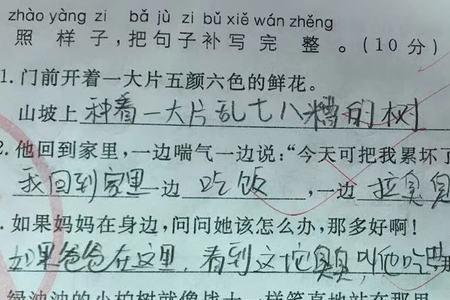 zhào yàng zi bǎ jù zi bǔ xiě wán zhěng
照 样 子 , 把 句 子 补 写 完 整 。(10 分)
1. 门前开着一大片五颜六色的鲜花。
山坡上种着一大片乱七八糟的树
2. 他回到家里,一边喘气一边说:“今天可把我累坏了
我回到家里一边 吃饭 ,一边 拉臭臭
. 如果妈妈在身边,问问她该怎么办,那多好啊!
如果爸爸在这里,看到这坨臭臭叫他吃
绿油油的小柏树就像战士一样笔直地站在那里